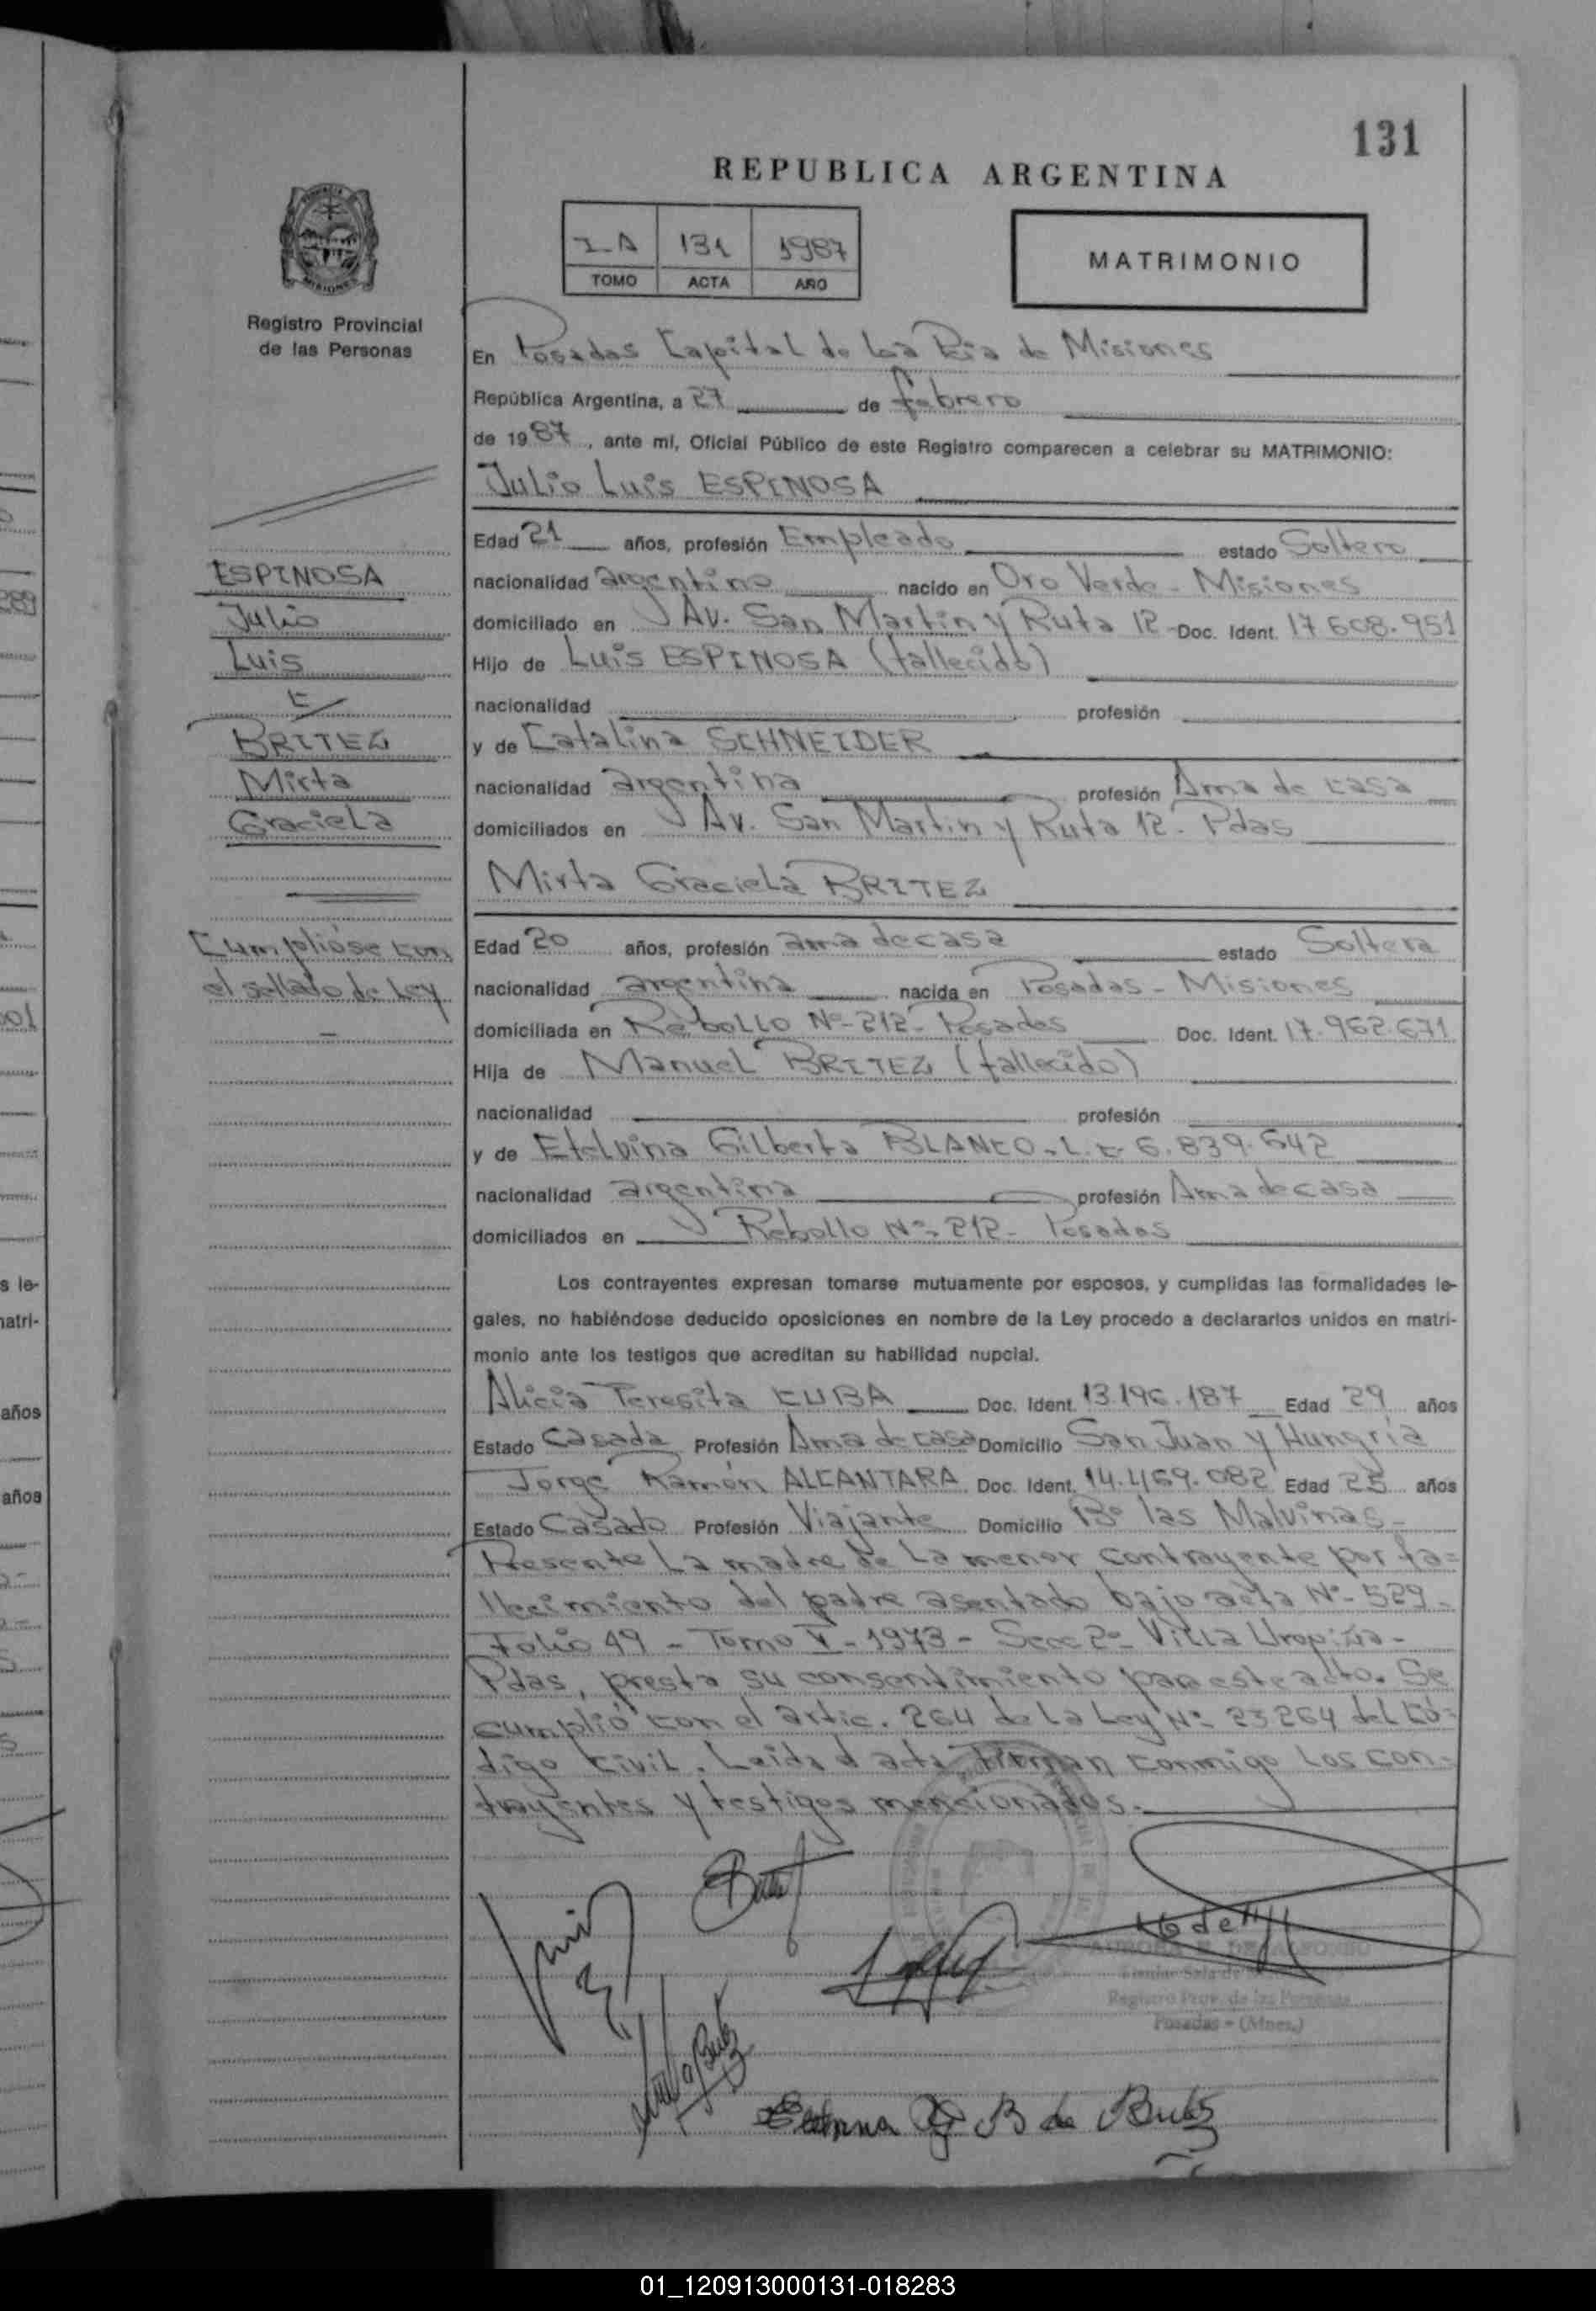 131
REPUBLICA ARGENTINA
131 1987
TOMO ACTA AÑO
MATRIMONIO
Registro Provincial
de las Personas
En Posadas Capital de La Pcia de Misiones
República Argentina, a 27 de febrero
de 1987, ante mí, Oficial Público de este Registro comparecen a celebrar su MATRIMONIO:
Julio Luis ESPINOSA
Edad 21 años, profesión Empleado estado Soltero
nacionalidad argentino nacido en Oro Verde - Misiones
domiciliado en Av. San Martin y Ruta 12 - Doc. Ident. 17.608.951
Hijo de Luis ESPINOSA (fallecido)
nacionalidad profesión
y de Catalina SCHNEIDER
nacionalidad argentina profesión Ama de casa
domiciliados en Av. San Martin y Ruta 12 - Pdas
Mirta Graciela BRITEZ
Edad 20 años, profesión ama de casa estado Soltera
nacionalidad argentina nacida en Posadas - Misiones
domiciliada en Rebollo Nº 212 - Posadas Doc. Ident. 17.962.671
Hija de Manuel BRITEZ (fallecido)
nacionalidad profesión
y de Etelvina Gilberta BLANCO - L.C. 6.839.642
nacionalidad argentina profesión Ama de casa
domiciliados en Rebollo Nº 212 - Posadas
Los contrayentes expresan tomarse mutuamente por esposos, y cumplidas las formalidades le-
gales, no habiéndose deducido oposiciones en nombre de la Ley procedo a declararlos unidos en matri-
monio ante los testigos que acreditan su habilidad nupcial.
Alicia Teresita CUBA Doc. Ident. 13.196.187 Edad 29 años
Estado Casada Profesión Ama de casa Domicilio San Juan y Hungria
Jorge Ramón ALCANTARA Doc. Ident. 14.469.082 Edad 25 años
Estado Casado Profesión Viajante Domicilio Bº las Malvinas -
Presente La madre de La menor contrayente por fa=
llecimiento del padre asentado bajo acta Nº 529 -
Folio 49 - Tomo V - 1973 - Secc 2º Villa Urquiza -
Pdas, presta su consentimiento para este acto. Se
cumplió con el artic. 264 de La Ley Nº 23264 del Có=
digo Civil. Leida el acta, firman conmigo Los con=
trayentes y testigos mencionados.-
ESPINOSA
Julio
Luis
c/
BRITEZ
Mirta
Graciela
Cumplióse con
el sellado de Ley
-
B de Britez
Registro Prov. de las Personas
Posadas - (Mnes.)
s le-
matri-
años
años
01_120913000131-018283